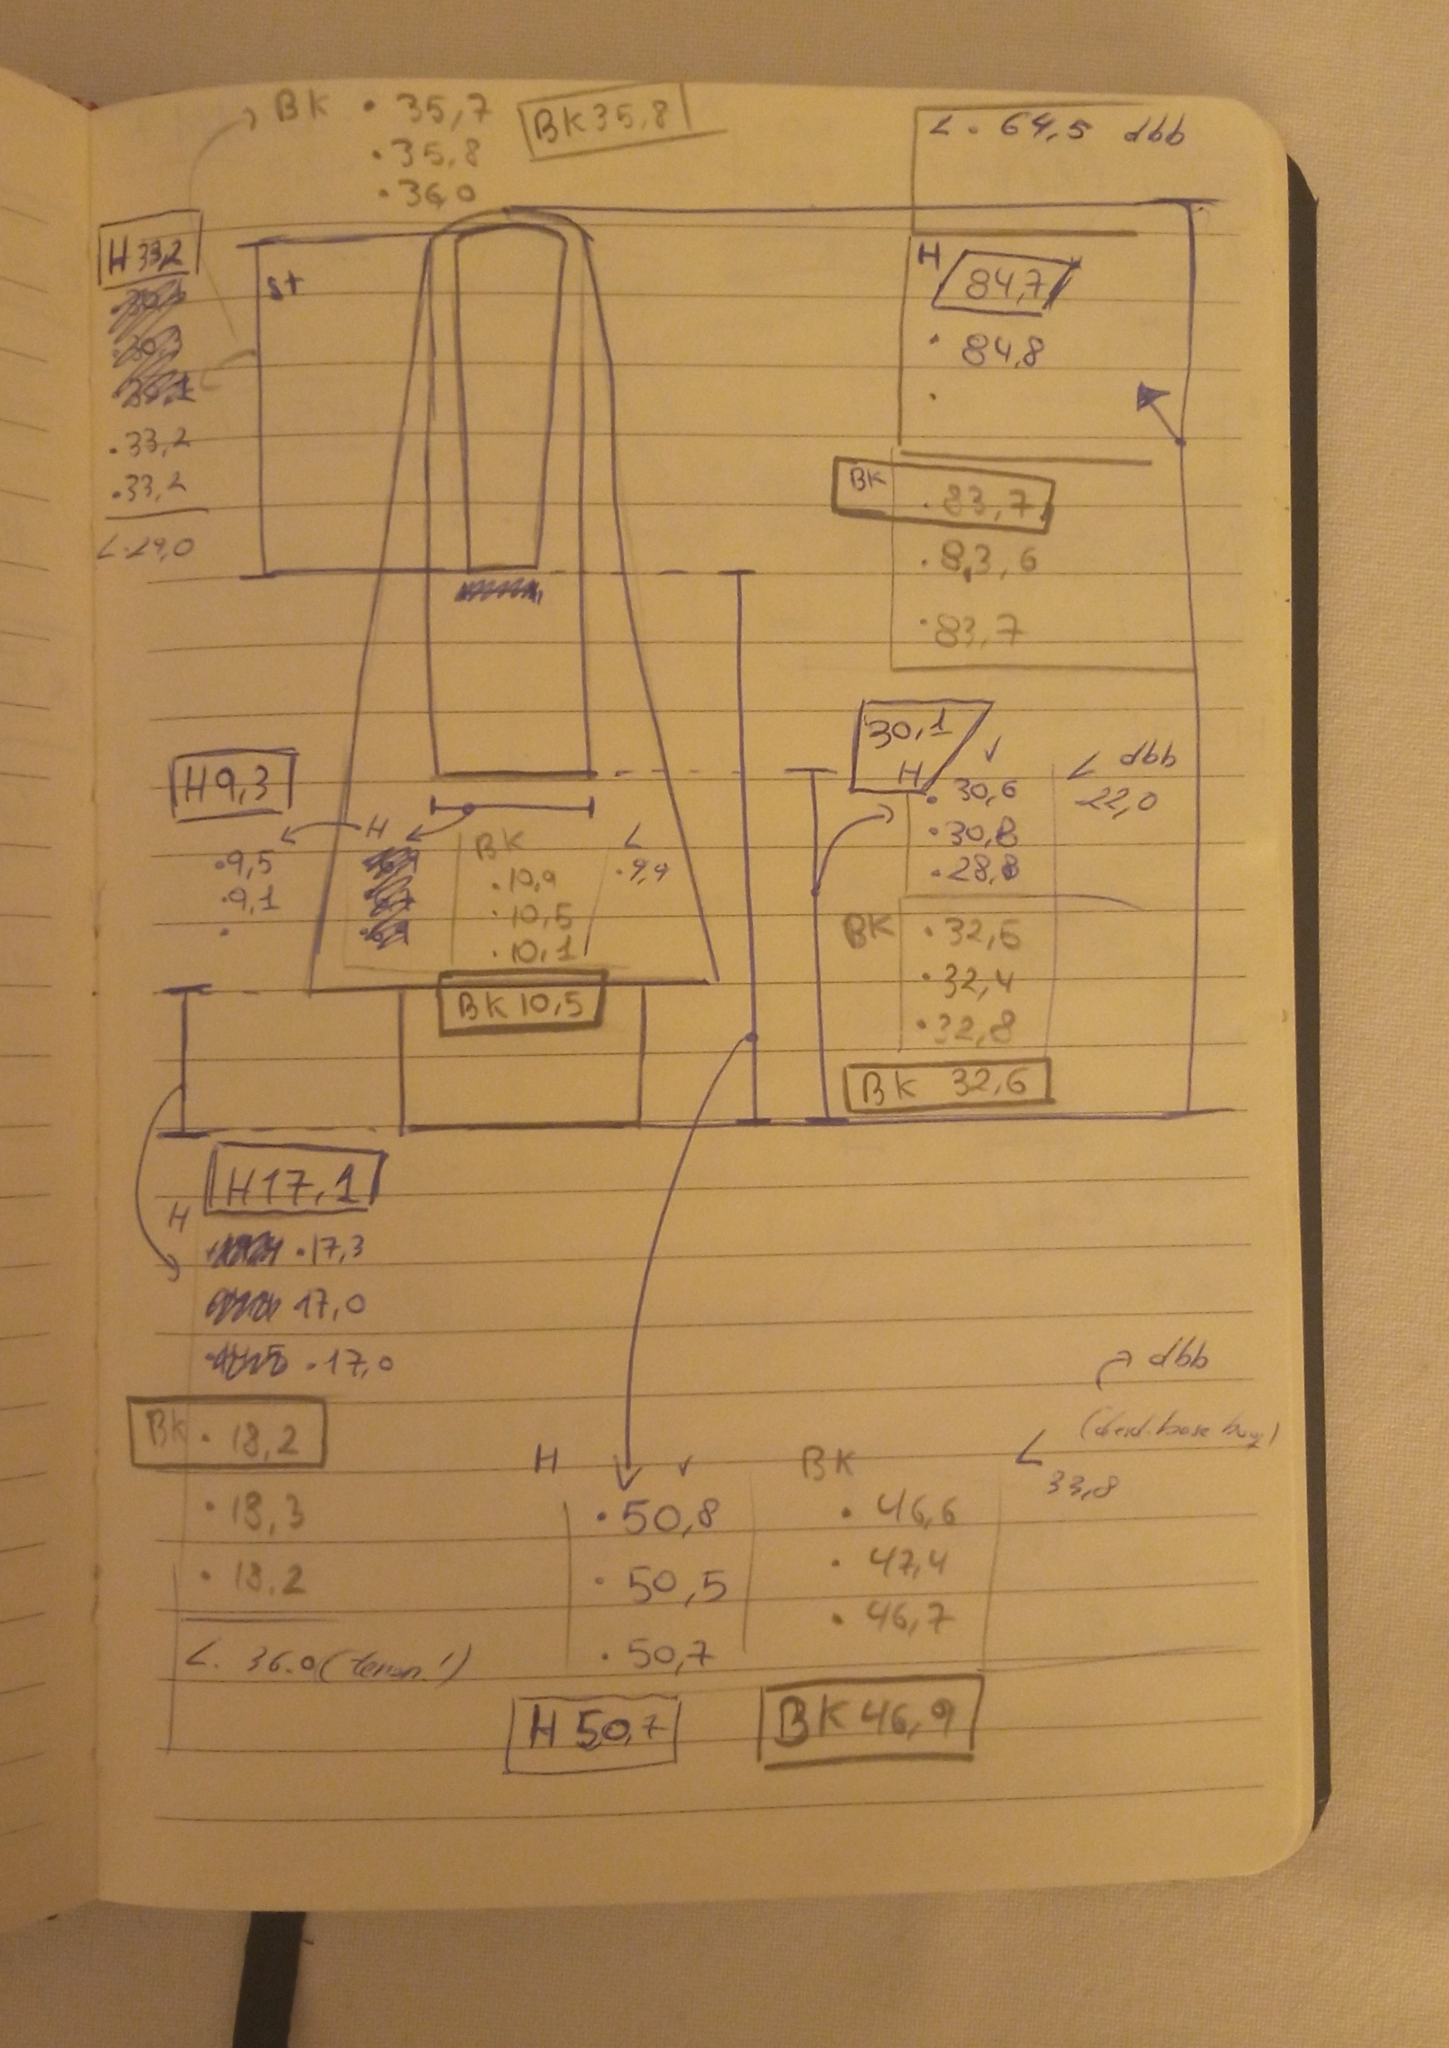 BK • 35,7
BK 35,8
• 35,8
• 36,0
L. 64,5 dbb
H 33,2
st
• 33,2
• 33,2
L. 29,0
H 84,7
• 84,8
•
BK • 83,7
• 83,6
• 83,7
30,1
H
• 30,6
• 30,8
• 28,8
L dbb
22,0
BK • 32,6
• 32,4
• 32,8
BK 32,6
H 9,3
• 9,5
• 9,1
•
H
BK
• 10,9
• 10,5
• 10,1
L
• 9,9
BK 10,5
H 17,1
H
• 17,3
17,0
• 17,0
BK • 18,2
• 18,3
• 18,2
L. 36.0
H
• 50,8
• 50,5
• 50,7
H 50,7
BK
• 46,6
• 47,4
• 46,7
BK 46,9
dbb
L
33,8